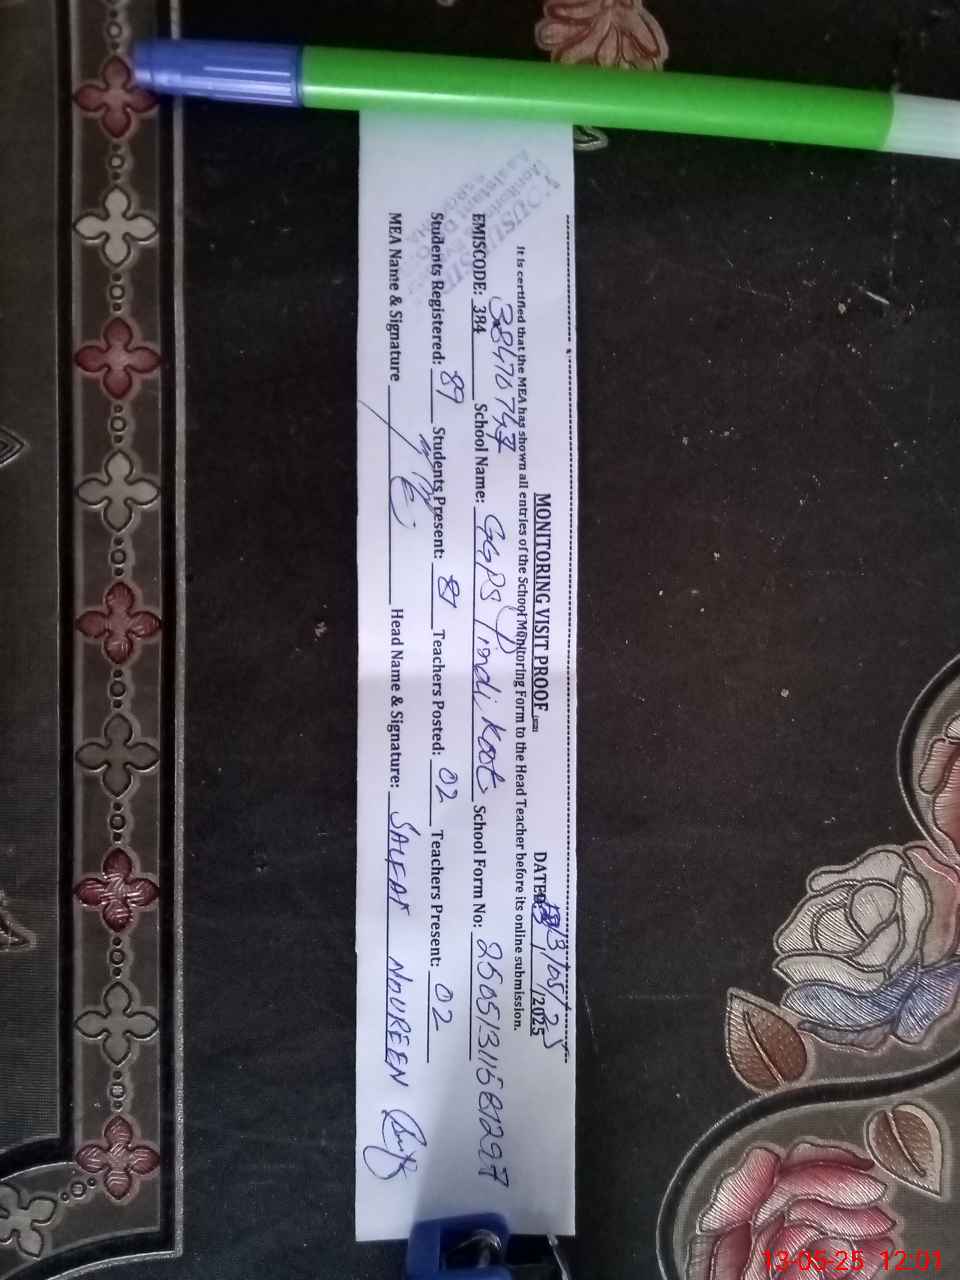 MONITORING VISIT PROOF
DATED 13/05/25 2025
It is certified that the MEA has shown all entries of the School Monitoring Form to the Head Teacher before its online submission.
EMISCODE: 384 38470747 School Name: GGPS Pindi Koot School Form No:
Students Registered: 89 Students Present: 81 Teachers Posted: 02 Teachers Present: 02
MEA Name & Signature Head Name & Signature: NOUREEN
13-05-25 12:01